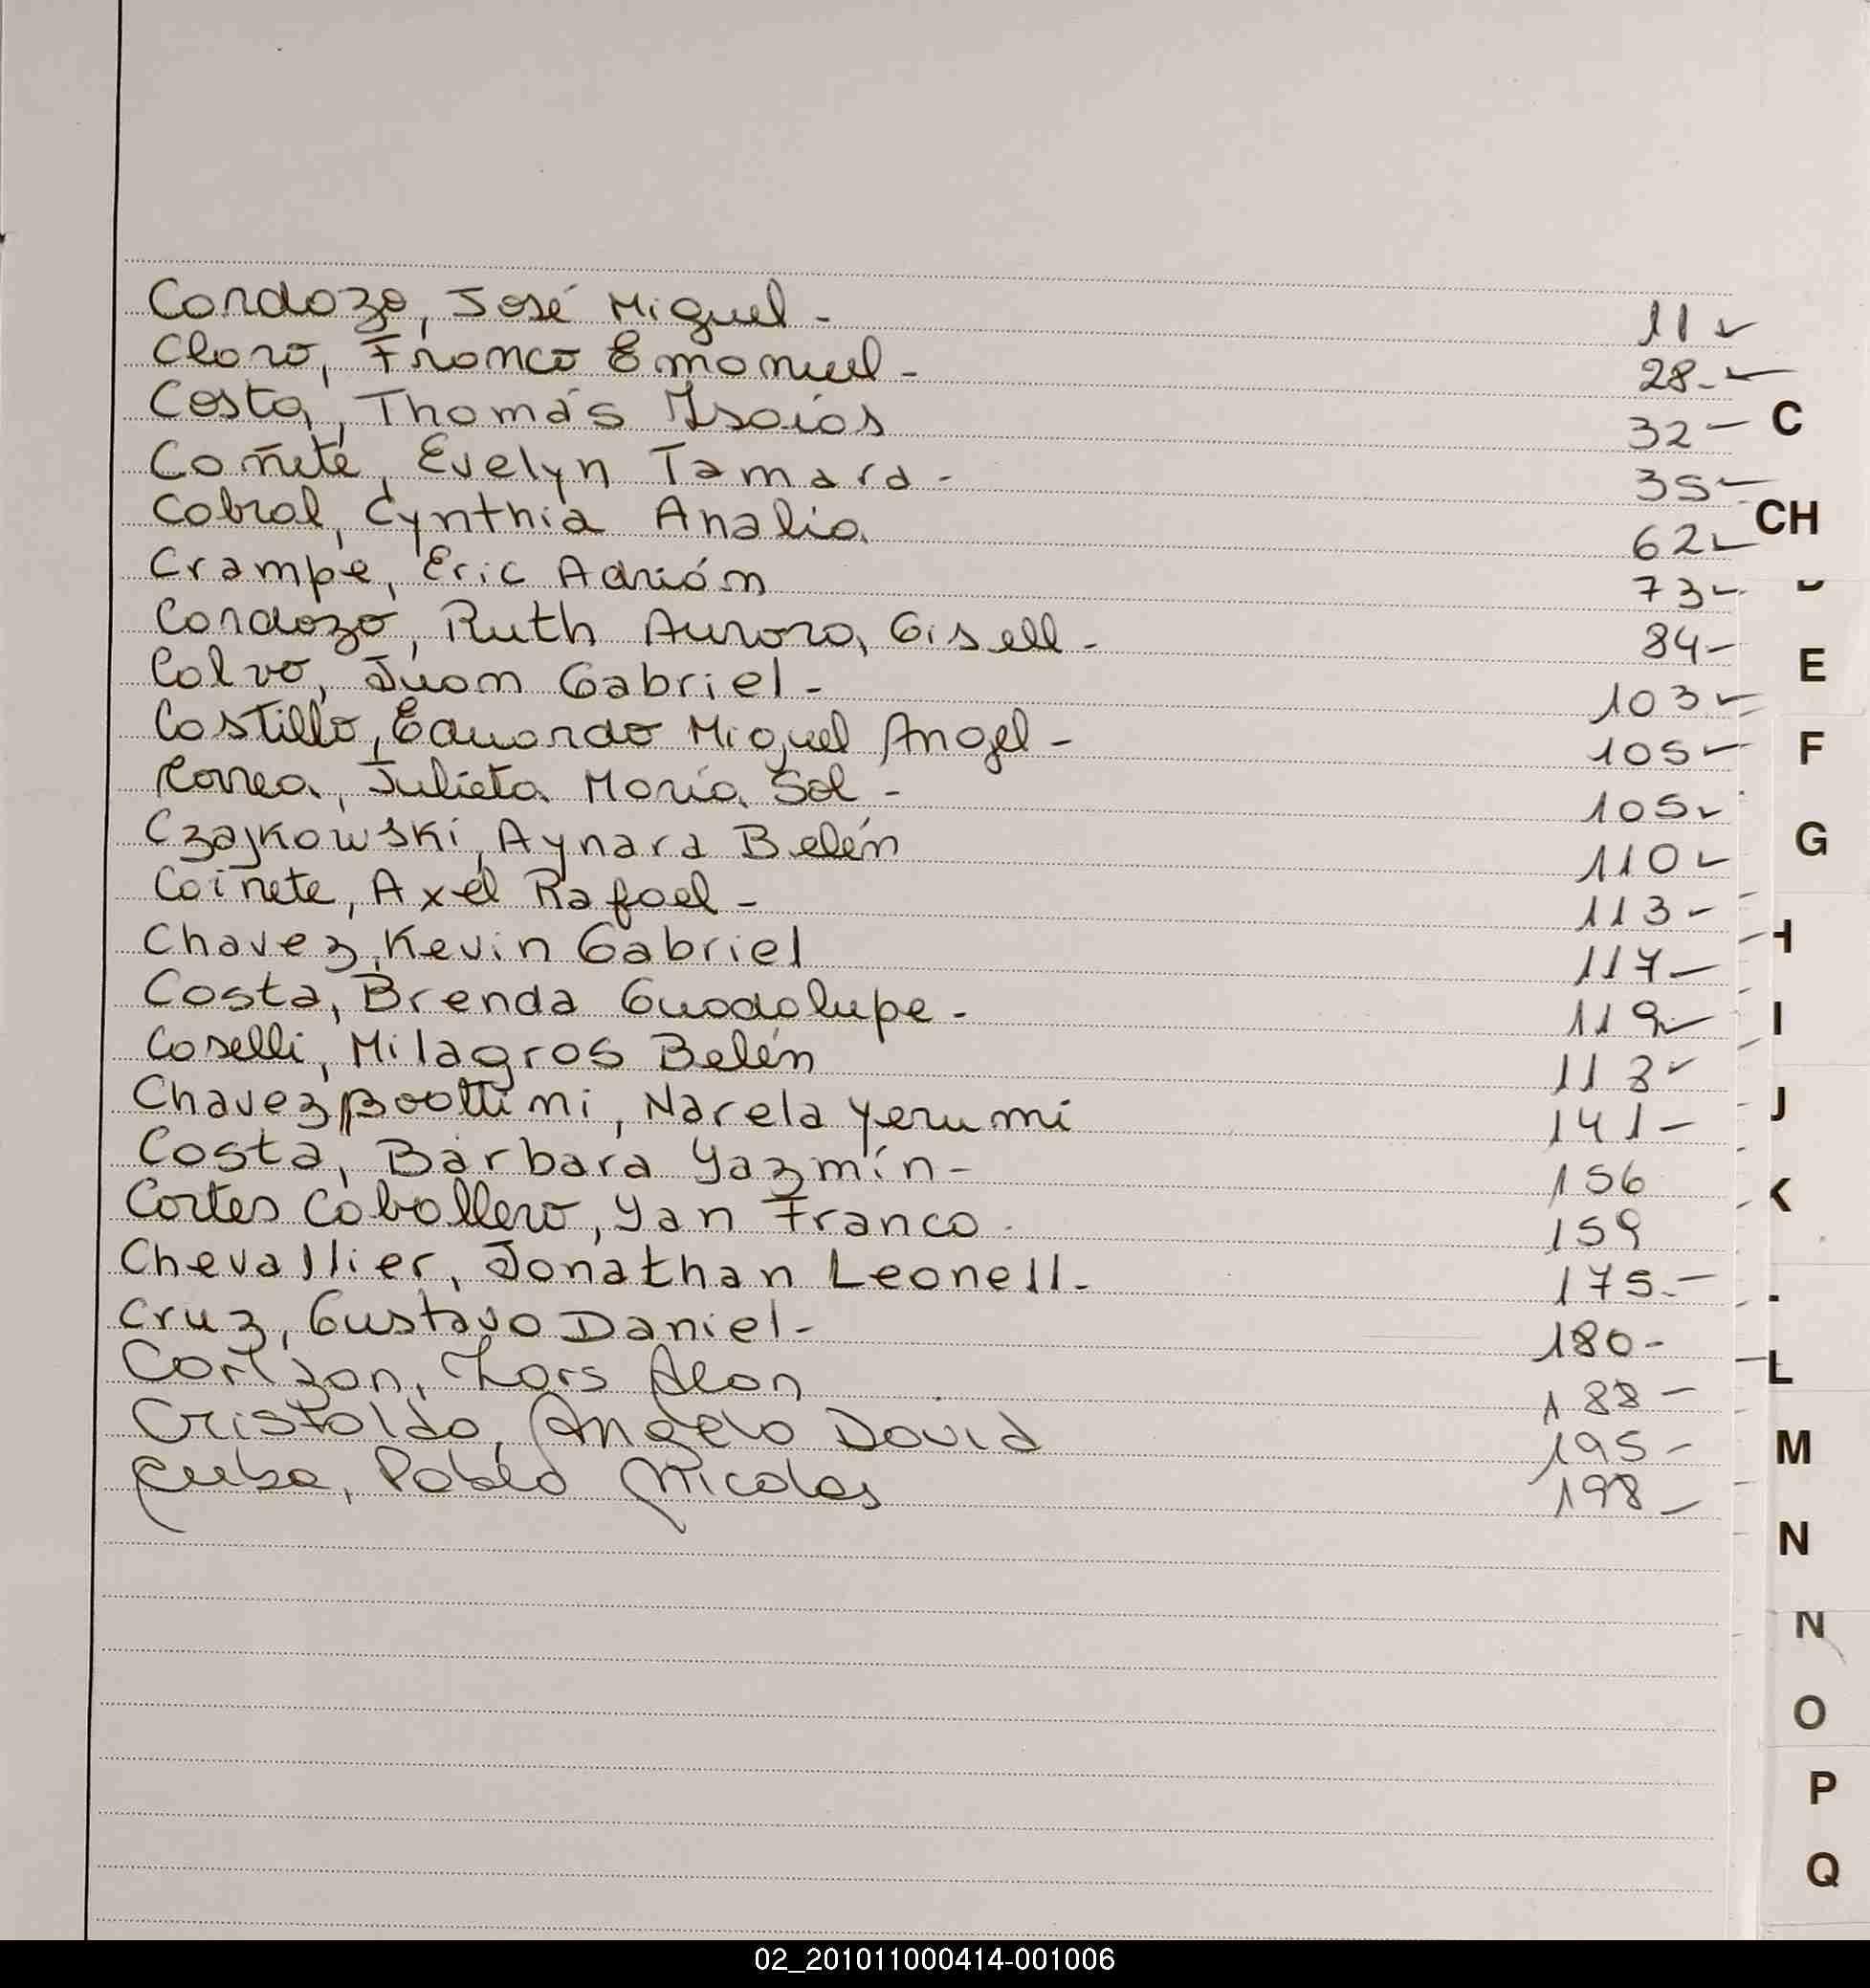 Cardozo, José Miguel - 11
Claro, Franco Emanuel - 28-
Costa, Thomás Isaías 32 -
Cañete, Evelyn Tamara - 35 -
Cabral, Cynthia Analia 62
Crampe, Eric Adrián 73 -
Cardozo, Ruth Aurora, Gisell - 84 -
Calvo, Juan Gabriel - 103
Castillo, Eduardo Miguel Angel - 105
Correa, Julieta María Sol - 105
Czajkowski, Aynara Belén 110
Cañete, Axel Rafael - 113 -
Chavez, Kevin Gabriel 117 -
Costa, Brenda Guadalupe - 119
Caselli, Milagros Belén 113
Chavez, Narela Yerumi 141 -
Costa, Bárbara Yazmín - 156
Cortes Caballero, Yan Franco - 159
Chevallier, Jonathan Leonell - 175 -
Cruz, Gustavo Daniel - 180 -
Lars Alan 188 -
Cristaldo, Angelo David 195 -
Cuba, Pablo Nicolas 198 -
C
CH
D
E
F
G
H
I
J
K
L
M
N
N
O
P
Q
02_201011000414-001006